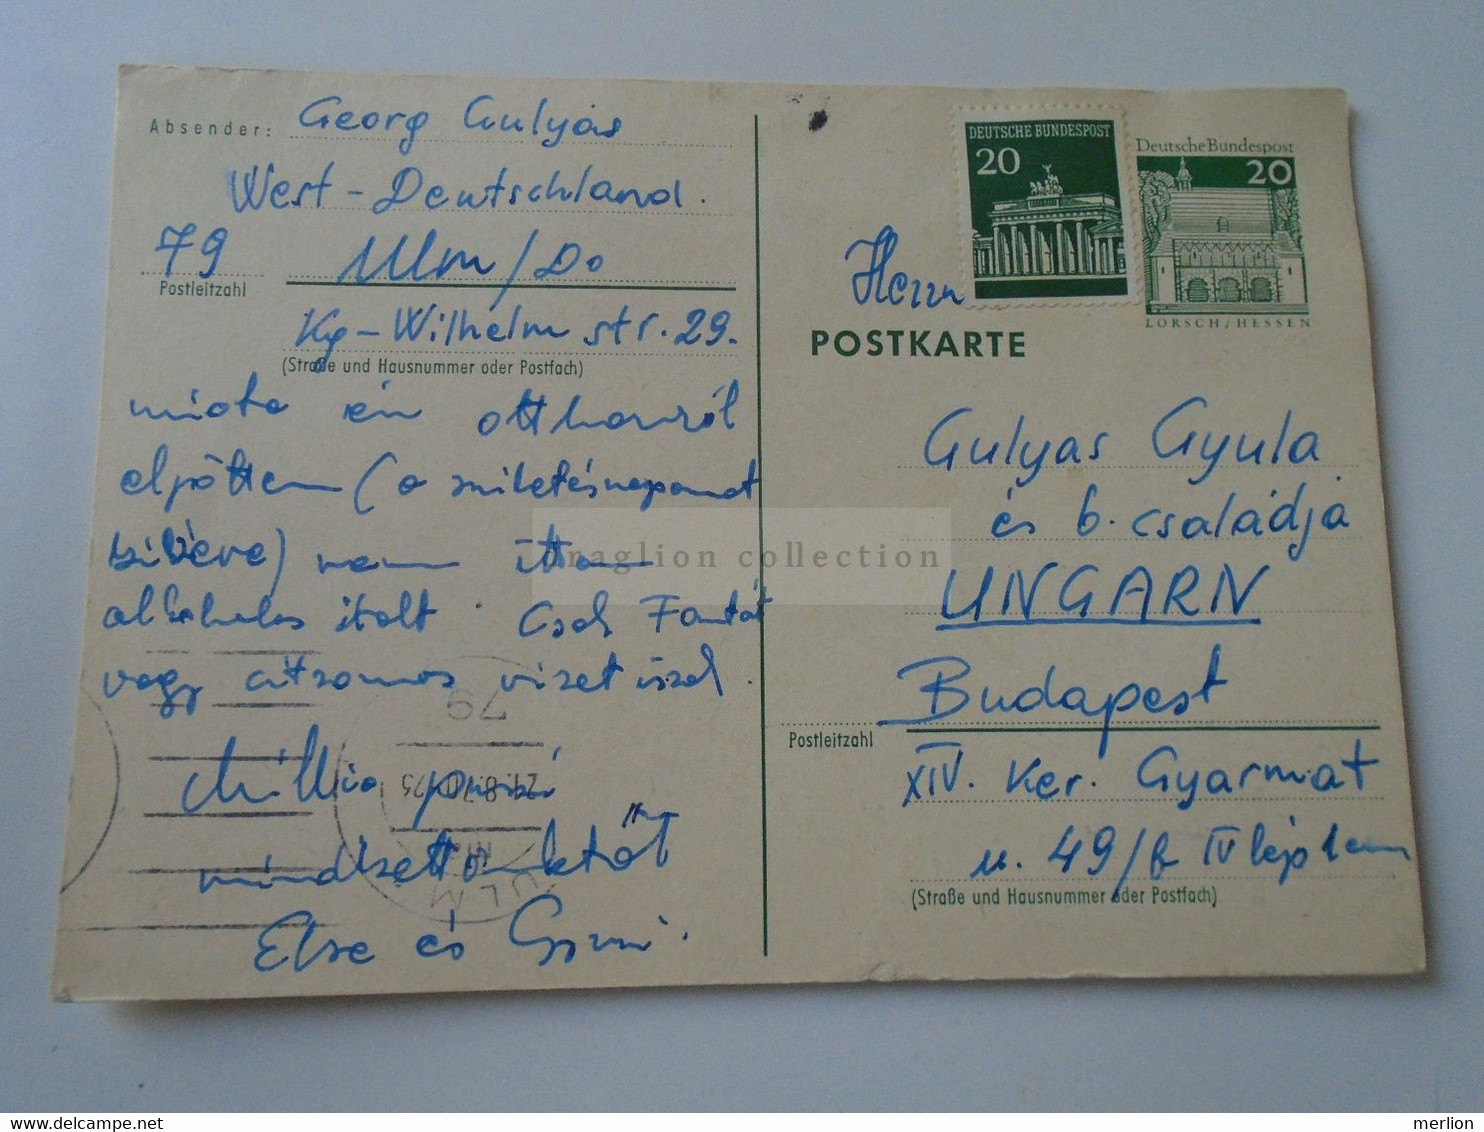 Absender: Georg Gulyás
West-Deutschland.
79 Ulm/Do
Postleitzahl
Kg-Wilhelm str. 29.
(Straße und Hausnummer oder Postfach)
miota én otthonról
eljöttem (a születésnapomat
kivéve) nem ittam
alkoholos italt. Csak Fantát
vagy citromos vizet iszok.
Millió puszi
mindkettőnktől
Else és Gyuri.
79
ULM
DEUTSCHE BUNDESPOST
20
Deutsche Bundespost
20
LORSCH/HESSEN
Herrn
POSTKARTE
Gulyas Gyula
és b. családja
UNGARN
Budapest
Postleitzahl
XIV. Ker. Gyarmat
u. 49/b IV lépl
(Straße und Hausnummer oder Postfach)
collection
merlion